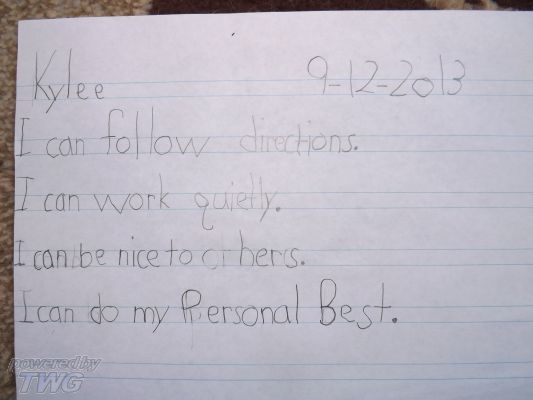 Kylee 9-12-2013
I can follow directions.
I can work quietly.
I can be nice to others.
I can do my Personal Best.
powered by
TWG